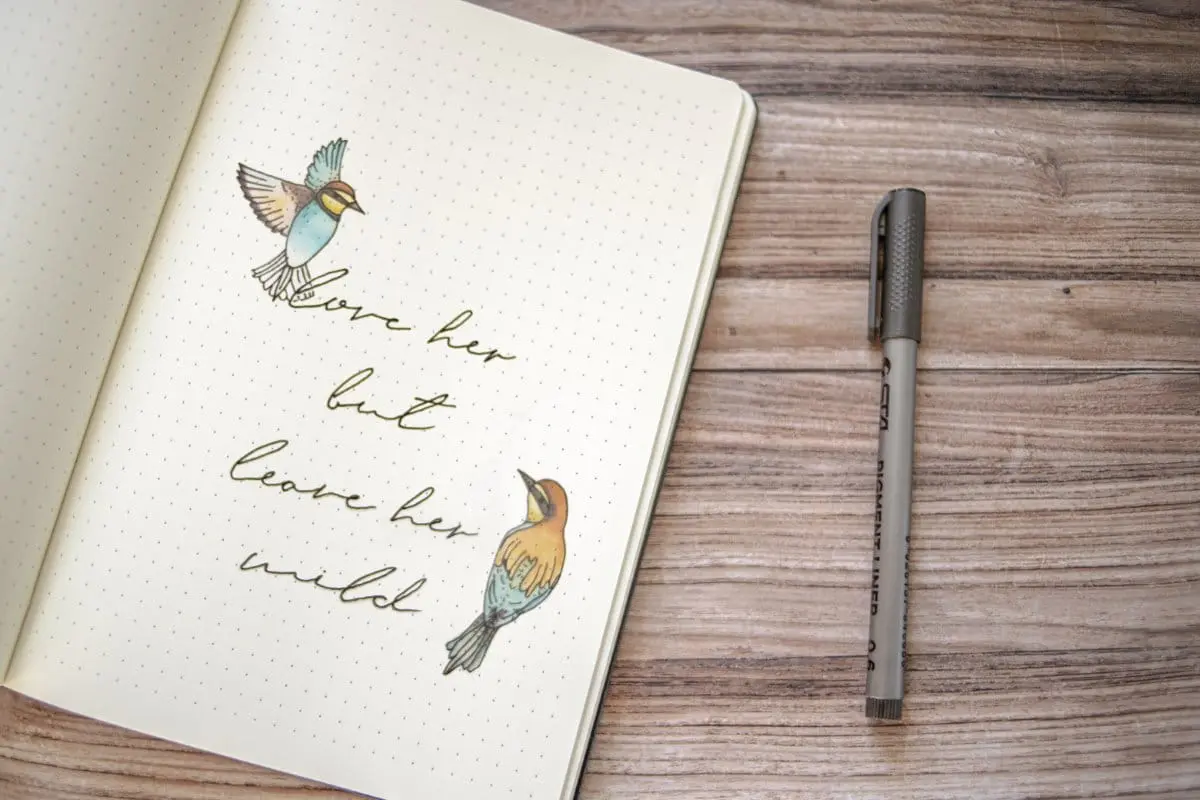 love her
but
leave her
wild
STA
PIGMENT LINER 0.6